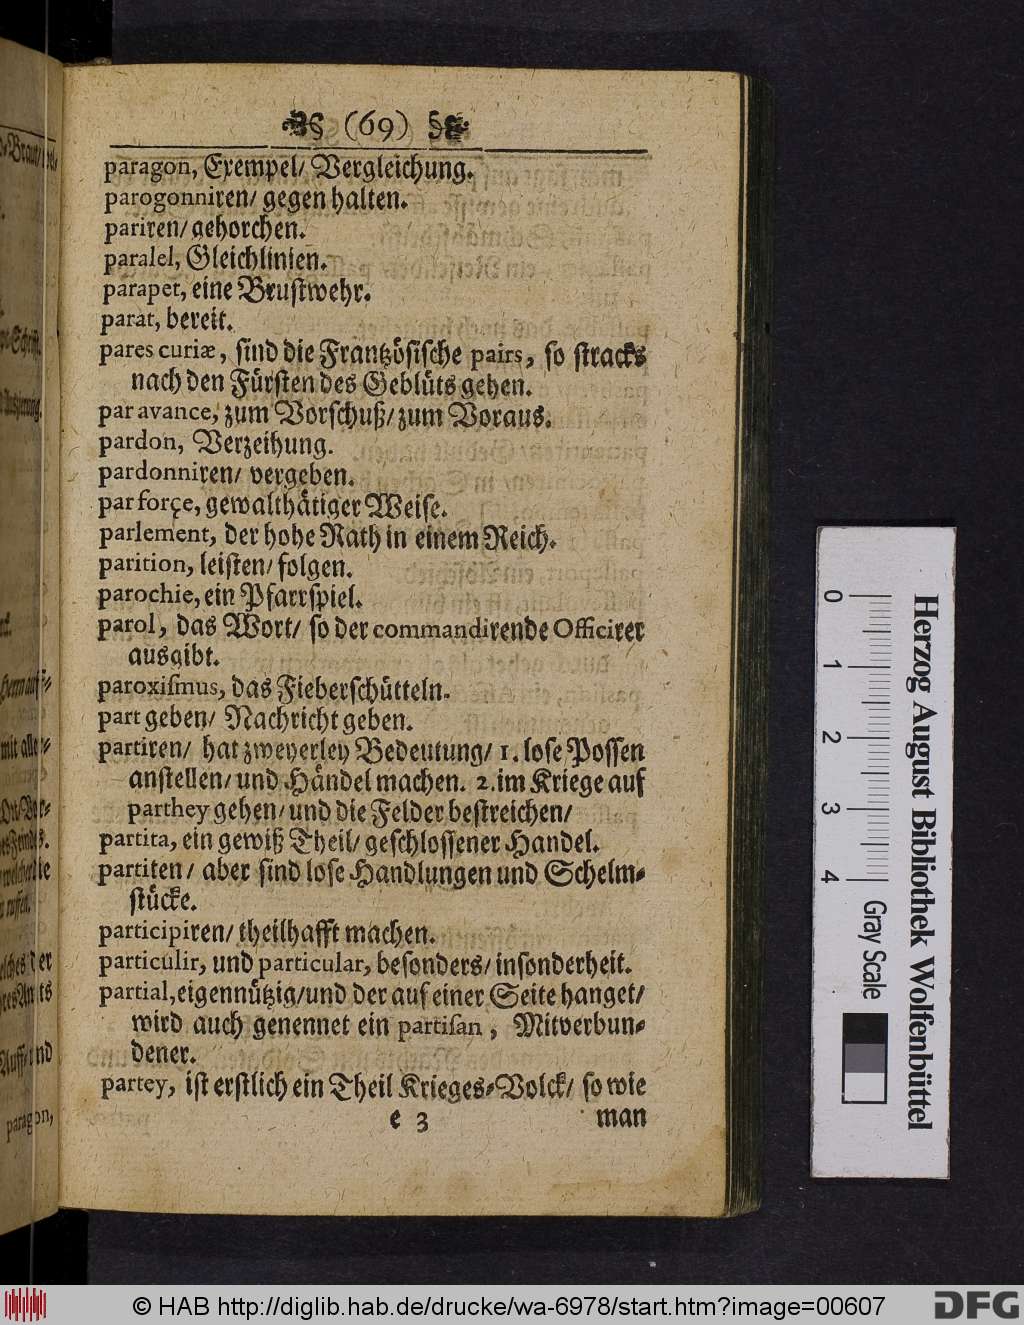 (69)
paragon, Exempel/ Vergleichung.
parogonniren/ gegen halten.
pariren/ gehorchen.
paralel, Gleichlinien.
parapet, eine Brustwehr.
parat, bereit.
pares curiæ, sind die Frantzösische pairs, so stracks
nach den Fürsten des Geblüts gehen.
par avance, zum Vorschuß/ zum Voraus.
pardon, Verzeihung.
pardonniren/ vergeben.
par forçe, gewalthätiger Weise.
parlement, der hohe Rath in einem Reich.
parition, leisten/ folgen.
parochie, ein Pfarrspiel.
parol, das Wort/ so der commandirende Officirer
ausgibt.
paroxiſmus, das Fieberschütteln.
part geben/ Nachricht geben.
partiren/ hat zweyerley Bedeutung/ 1. lose Possen
anstellen/ und Händel machen. 2. im Kriege auf
parthey gehen/ und die Felder bestreichen/
partita, ein gewiß Theil/ geschlossener Handel.
partiten/ aber sind lose Handlungen und Schelm-
stücke.
participiren/ theilhafft machen.
particulir, und particular, besonders/ insonderheit.
partial, eigennützig/ und der auf einer Seite hanget/
wird auch genennet ein partiſan, Mitverbun-
dener.
partey, ist erstlich ein Theil Krieges-Volck/ so wie
e 3 man
paragon,
0 1 2 3 4
Herzog August Bibliothek Wolfenbüttel
Gray Scale
© HAB http://diglib.hab.de/drucke/wa-6978/start.htm?image=00607
DFG